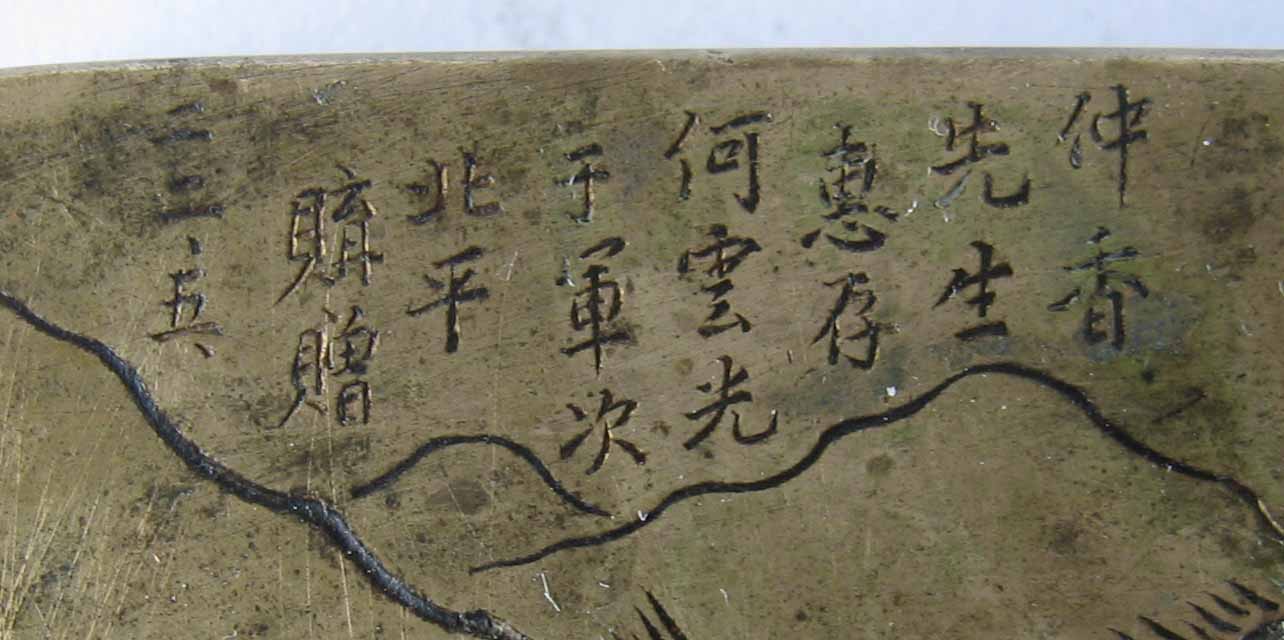 仲香
先生
惠存
何雲光
于軍次
北平
購贈
二三五